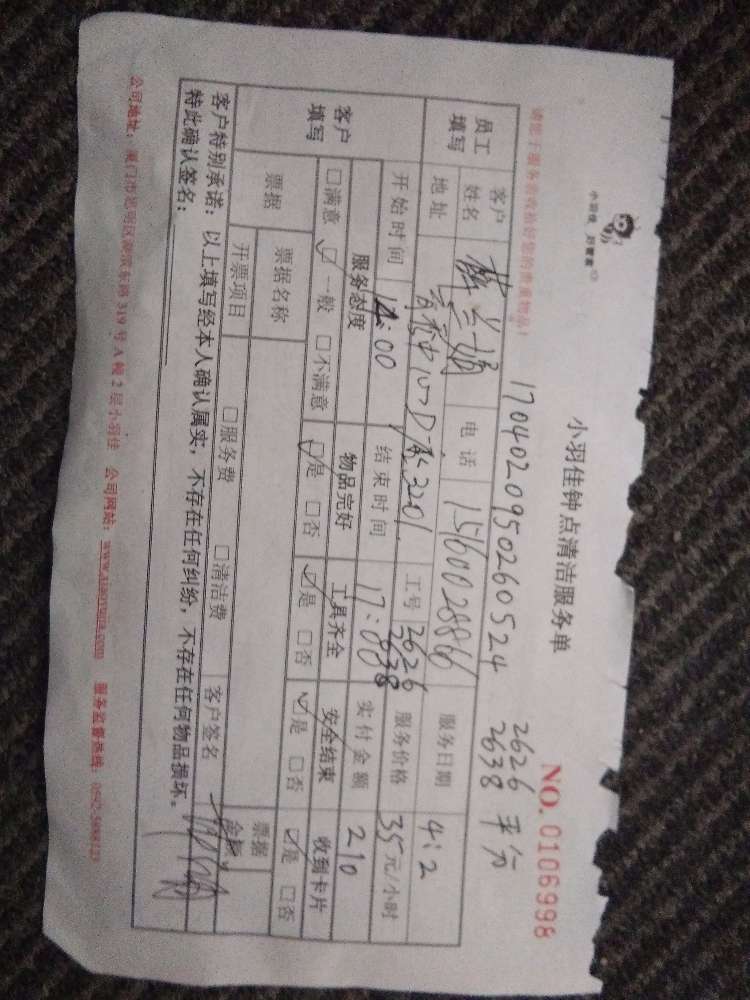 小羽佳 好管家
小羽佳钟点清洁服务单
NO. 0106998
请您于服务前收拾好您的贵重物品！
17040209502605 24 2626 平分
2638
员工填写 客户姓名 兰娟 电话 1560028866 服务日期 4:2
地址 中心D栋3201 工号 2626 2638 服务价格 35元/小时
客户填写 开始时间 14:00 结束时间 17:00 实付金额 210
服务态度 物品完好 工具齐全 安全结束 收到卡片
□满意 ☑一般 □不满意 ☑是 □否 ☑是 □否 ☑是 □否 ☑是 □否
票据 票据名称 票据金额
开票项目 □服务费 □清洁费 客户签名
客户特别承诺：以上填写经本人确认属实，不存在任何纠纷，不存在任何物品损坏。
特此确认签名：
公司地址：厦门市思明区湖滨东路319号A幢2层小羽佳 公司网站：www.xiaoyujia.com 服务监督热线：0592-5888123